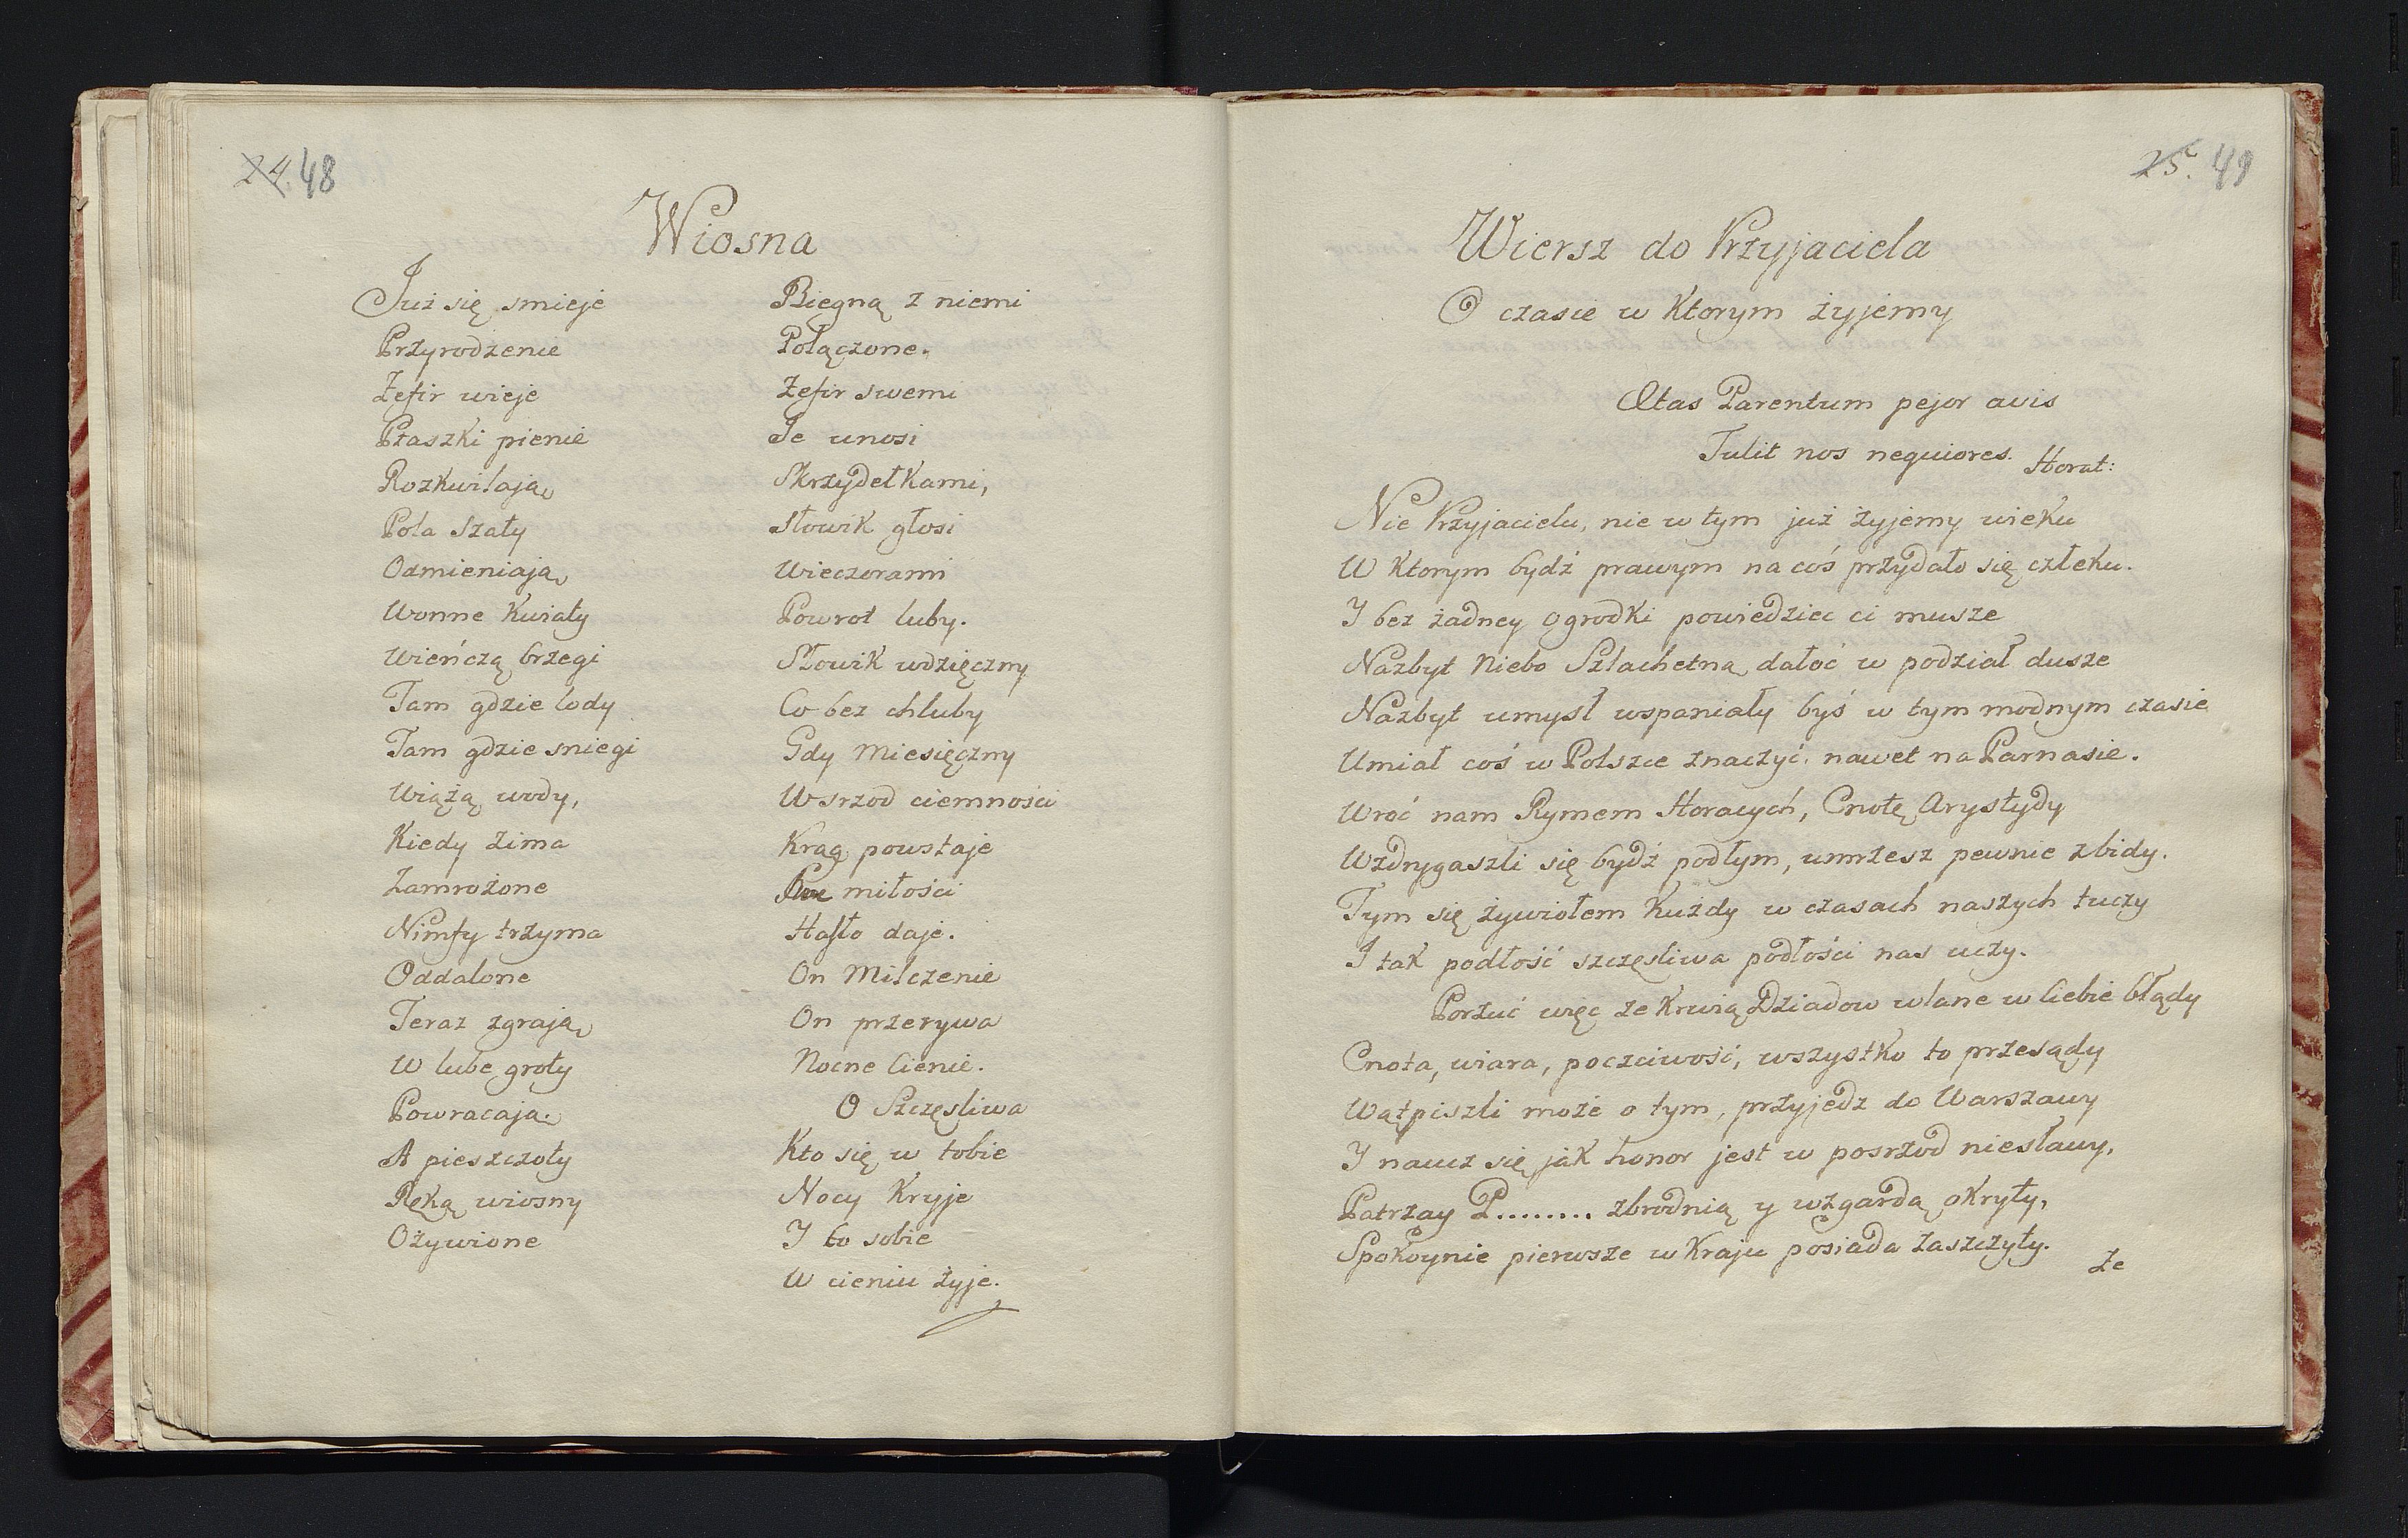 24. 48
Wiosna
Już się smieje
Przyrodzenie
Zefir wieje
Ptaszki pienie
Rozkwilają
Pola szaty
Odmieniają
Wonne Kwiaty
Wieńczą brzegi
Tam gdzie lody
Tam gdzie sniegi
Wiążą wody,
Kiedy zima
Zamrożone
Nimfy trzyma
Oddalone
Teraz zgrają
W lube groty
Powracają.
A pieszczoty
Ręką wiosny
Ożywione
Biegną z niemi
Połączone.
Zefir swemi
Je unosi
Skrzydełkami,
Słowik głosi
Wieczorami
Powrot luby.
Słowik wdzięczny
Co bez chluby
Gdy Miesięczny
Wsrzod ciemności
Krąg powstaje
miłości
Hasło daje.
On Milczenie
On przerywa
Nocne Cienie.
O Szczęsliwa
Kto się w tobie
Nocy Kryje
I to sobie
W cieniu żyje.
25. 49
Wiersz do Przyjaciela
O czasie w Ktorym żyjemy
Ætas Parentum pejor avis
Tulit nos nequiores. Horat:
Nie Przyjacielu, nie w tym już żyjemy wieku
W Ktorym bydź prawym na coś przydało się człeku.
I bez żadney ogrodki powiedziec ci musze
Nazbyt Niebo Szlachetną dałoć w podział dusze
Nazbyt umysł wspaniały byś w tym modnym czasie
Umiał coś w Polszce znaczyć, nawet na Parnasie.
Wroć nam Rymem Horacych, Cnotę Arystydy
Wzdrygaszli się bydź podłym, umrzesz pewnie z bidy.
Tym się żywiołem Kużdy w czasach naszych tuczy
I tak podłość szczęsliwa podłości nas uczy.
Porzuć więc ze Krwią Dziadow wlane w Ciebie błądy
Cnota, wiara, poczciwość, wszystko to przesądy
Wątpiszli może o tym, przyjedz do Warszawy
I naucz się jak honor jest w posrzod niesławy,
Patrzay P......... zbrodnią y wzgardą okryty,
Spokoynie pierwsze w Kraju posiada zaszczyty.
Ze